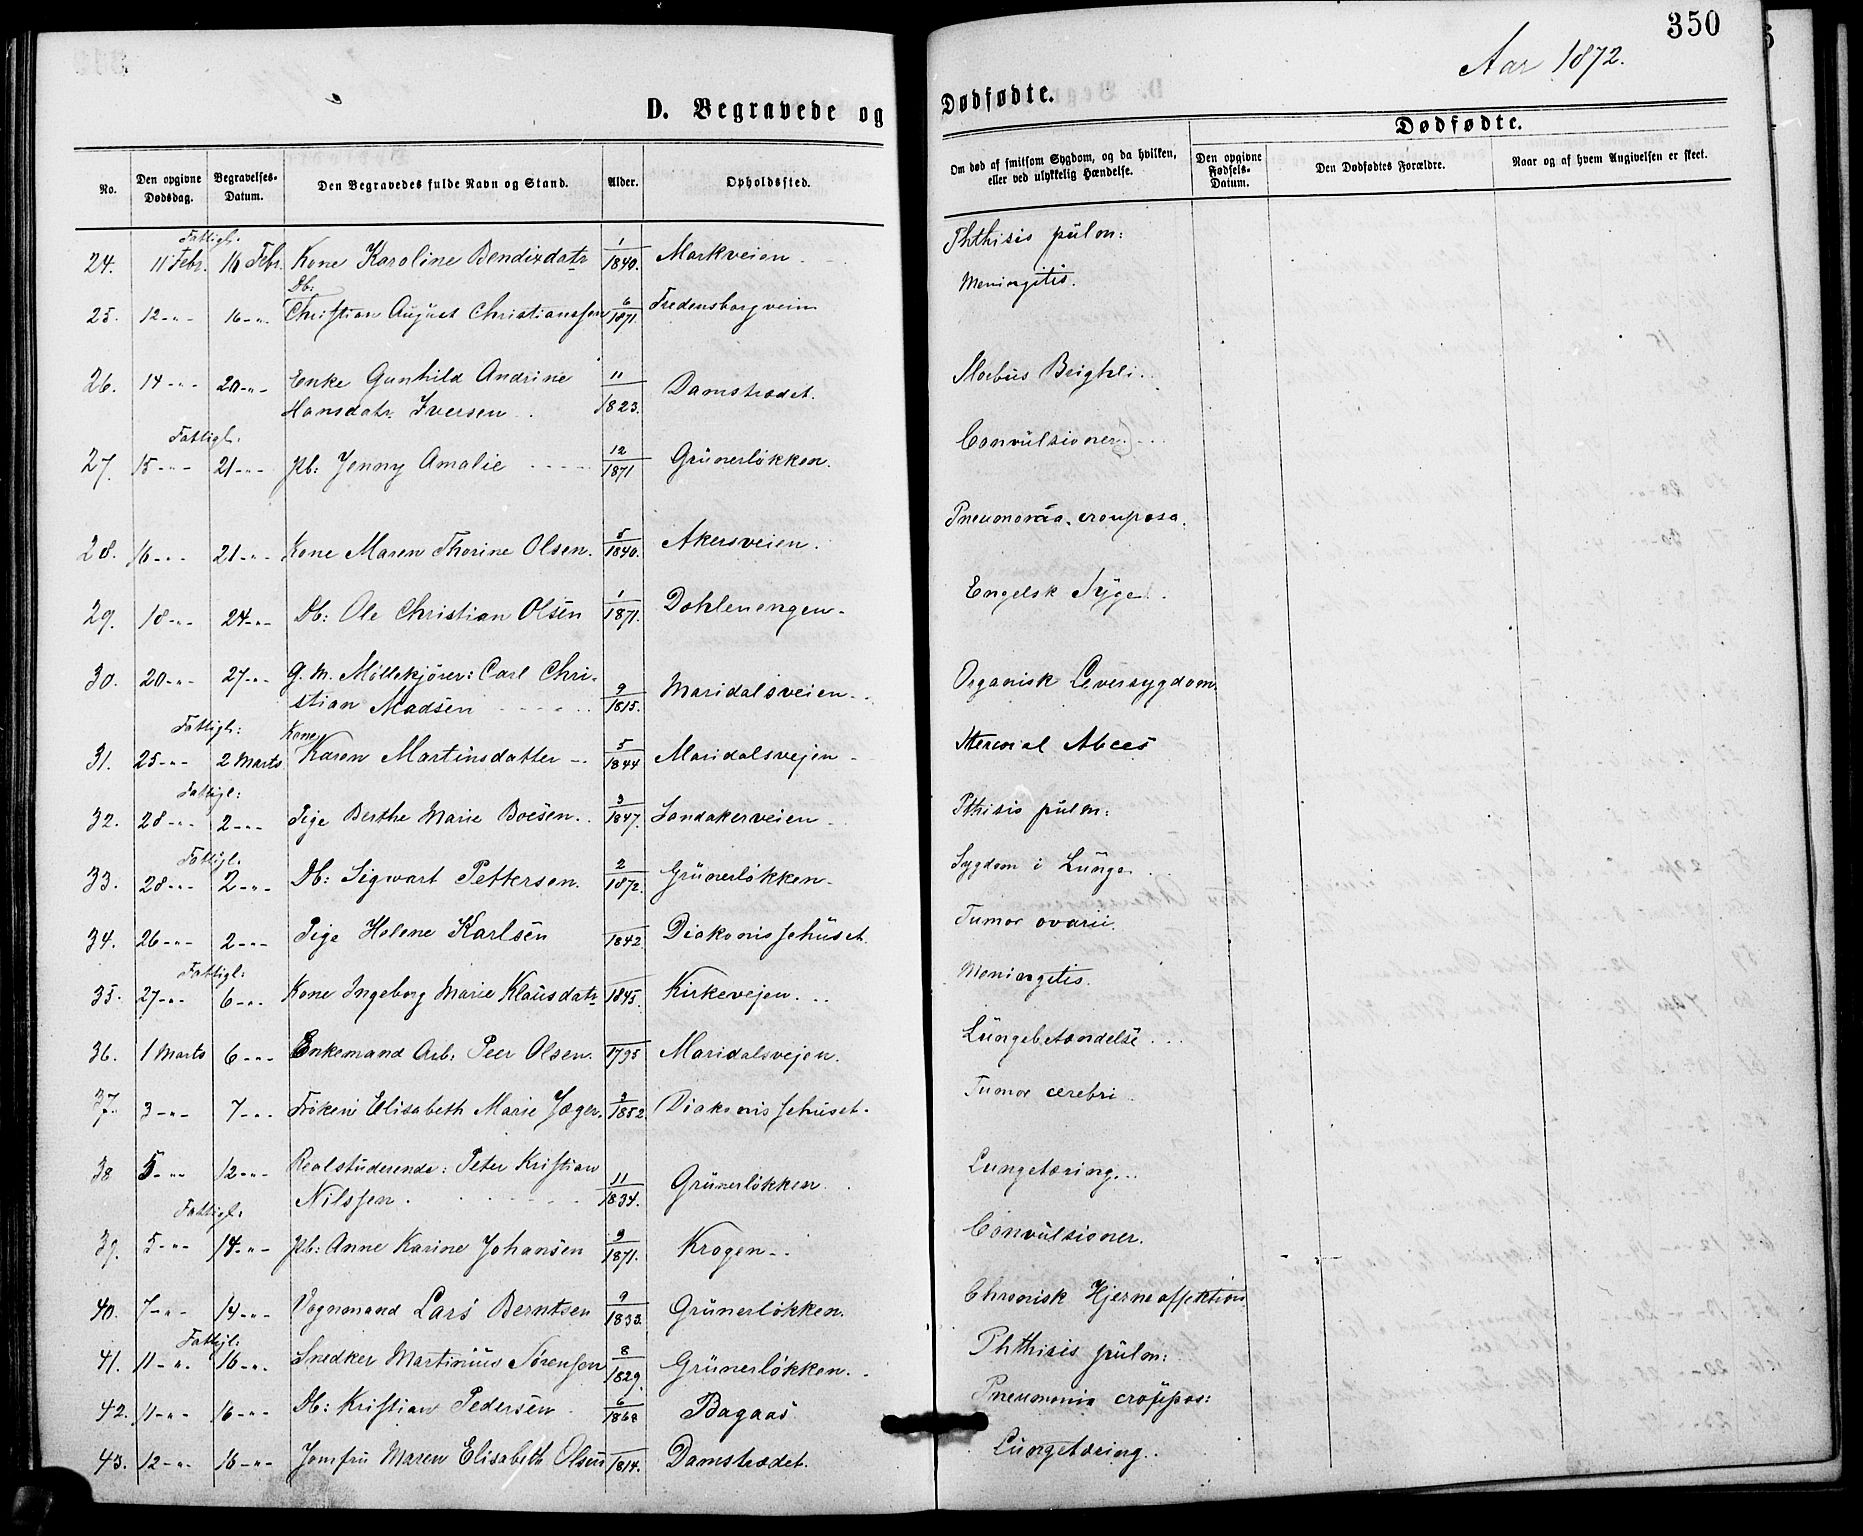 350
Aar 1872.
D. Begravede og Dødfødte.
Dødfødte.
No. Den opgivne Dødsdag. Begravelses-Datum. Den Begravedes fulde Navn og Stand. Alder. Opholdssted. Om død af smitsom Sygdom, og da hvilken, eller ved ulykkelig Hændelse. Den opgivne Fødsels-Datum. Den Dødfødtes Forældre. Naar og af hvem Angivelsen er skeet.
Fattigl.
24. 11 Febr. 16 Febr. Kone Karoline Bendixdatr 1/1840. Markveien. Phthisis pulm:
Db:
25. 12-"- 16-"- Christian August Christianssen 6/1871. Fredensborgveien Meningitis.
26. 14-"- 20-"- Enke Gunhild Andrine 11/1823. Damstrædet. Morbus Brightii.
Hansdatr Iversen
Fattigl:
27. 15-"- 21-"- Pb: Jenny Amalie 12/1871 Grünerløkken. Convulsioner.
28. 16-"- 21-"- Kone Maren Thorine Olsen. 5/1840. Akersveien. Pneumonia crouposa.
29. 18-"- 24-"- Db: Ole Christian Olsen 1/1871. Døhlenengen. Engelsk Syge.
30. 20-"- 27-"- G. M. Møllekjører: Carl Chri-
stian Madsen 9/1815. Maridalsveien. Organisk Leversygdom.
Fattigl: Kone
31. 25-"- 2 Marts Karen Martinsdatter 5/1844 Maridalsvejen Stercoral Absces
Fattigl:
32. 28-"- 2-"- Pige Berthe Marie Boesen. 3/1847. Sandakerveien Pthisis pulm:
Fattigl.
33. 28-"- 2-"- Db: Sigwart Pettersen. 2/1872. Grünerløkken. Sygdom i Lunge
34. 26-"- 2-"- Pige Helene Karlsen 1842. Diakonissehuset. Tumor ovarii.
Fattigl:
35. 27-"- 6-"- Kone Ingeborg Marie Klausdatr 1845. Kirkevejen. Meningitis.
36. 1 Marts 6-"- Enkemand Arb: Peer Olsen. 1795 Maridalsvejen. Lungebetændelse
37. 3-"- 7-"- Frøken Elisabeth Marie Jæger. 3/1852 Diakonissehuset. Tumor cerebri
38 5-"- 12-"- Realstuderende: Peter Kristian
Nilssen. 11/1834. Grünerløkken Lungetæring.
Fattigl:
39. 5-"- 14-"- Pb: Anne Karine Johansen 9/1871. Krogen. Convulsioner.
40. 7-"- 14-"- Vognmand Lars Berntsen 9/1833. Grünerløkken. Chronisk Hjerneaffektion
Fattigl:
41. 11-"- 16-"- Snedker Martinius Sørensen 8/1829. Grünerløkken. Phthisis pulm:
42. 11-"- 16-"- Db: Kristian Pedersen 6/1868 Bagaas Pneumonia croupos:
43. 12-"- 16-"- Jomfru Maren Elisabeth Olsen 1814. Damstrædet. Lungetæring.